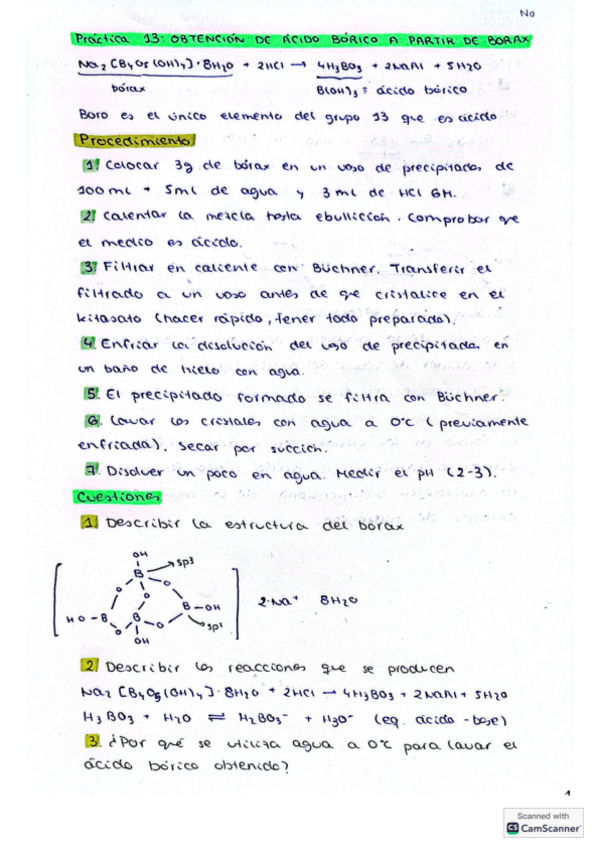 No
Práctica 13: OBTENCIÓN DE ÁCIDO BÓRICO A PARTIR DE BORAX
Na2 [B4O5(OH)4]·8H2O + 2HCl → 4H3BO3 + 2NaAl + 5H2O
bórax B(OH)3 = ácido bórico
Boro es el único elemento del grupo 13 que es ácido
Procedimiento
1. Colocar 3g de bórax en un vaso de precipitados de
100mL + 5mL de agua y 3 mL de HCl 6M.
2. Calentar la mezcla hasta ebullición. Comprobar que
el medio es ácido.
3. Filtrar en caliente con Büchner. Transferir el
filtrado a un vaso antes de que cristalice en el
kitasato (hacer rápido, tener todo preparado).
4. Enfriar la desolución del vaso de precipitado, en
un baño de hielo con agua.
5. El precipitado formado se filtra con Büchner.
6. Lavar los cristales con agua a 0°C (previamente
enfriada). Secar por succión.
7. Disolver un poco en agua. Medir el pH (2-3).
Cuestiones
1. Describir la estructura del bórax
OH
B sp3
O O
O
HO-B B B-OH
O O sp2
OH
2·Na+ 8H2O
2. Describir las reacciones que se producen
Na2 [B4O5(OH)4]·8H2O + 2HCl → 4H3BO3 + 2NaAl + 5H2O
H3BO3 + H2O ⇌ H2BO3- + H3O- (eq. ácido-base)
3. ¿Por qué se utiliza agua a 0°C para lavar el
ácido bórico obtenido?
1
Scanned with
CS CamScanner